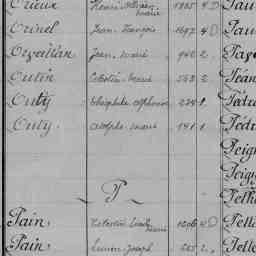 Orieux Henri William Marie 1885 4 D Pau
Orinel Jean François 1697 4 D Pau
Orveillan Jean Marie 942 2 Pay
Outin Célestin Marie 543 2 Péan
Outy Théophile Alphonse 224 1 Pédr
Outy Adolphe Marie 141 1 Pédr
Peign
Peign
P Pelh
Pain Célestin Louis Marie 1206 4 D Pell
Pain Lucien Joseph 265 2 Pelle